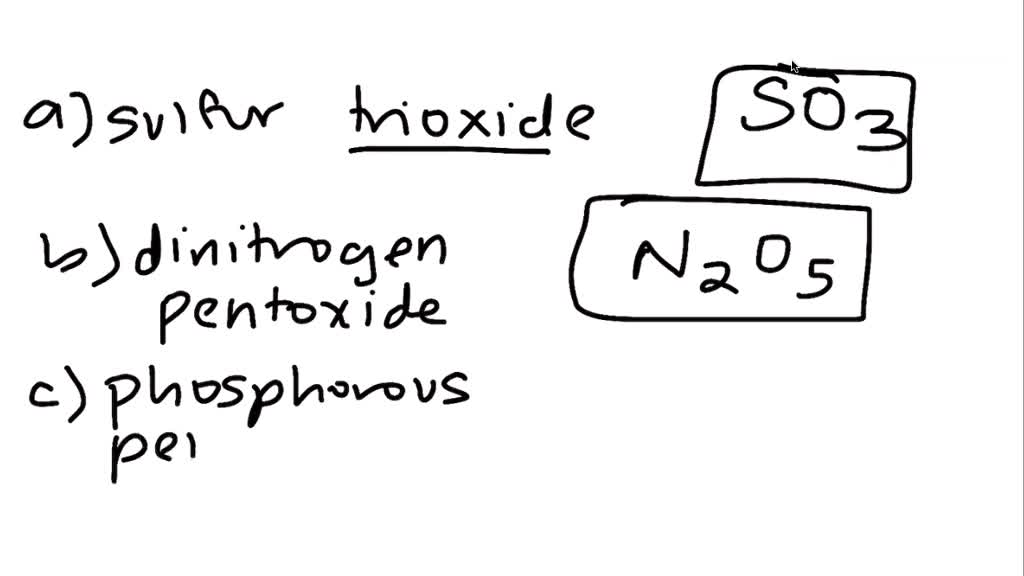 a) sulfur trioxide SO3
b) dinitrogen
pentoxide N2O5
c) phosphorous
pe